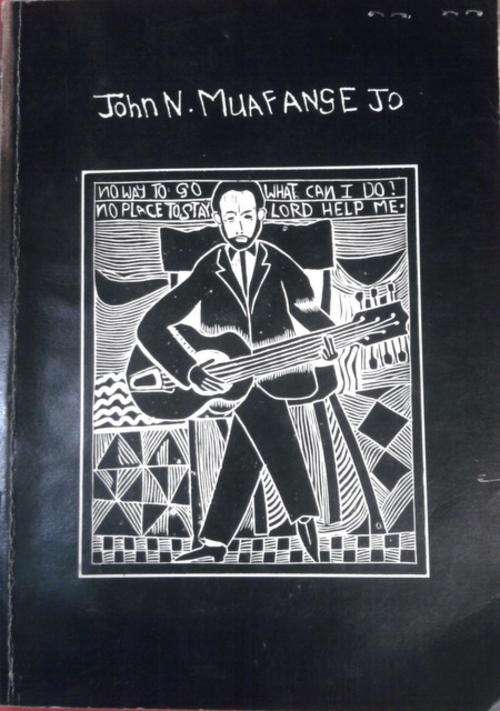 John N. MUAFANGEJO
NO WAY TO GO WHAT CAN I DO!
NO PLACE TO STAY LORD HELP ME.